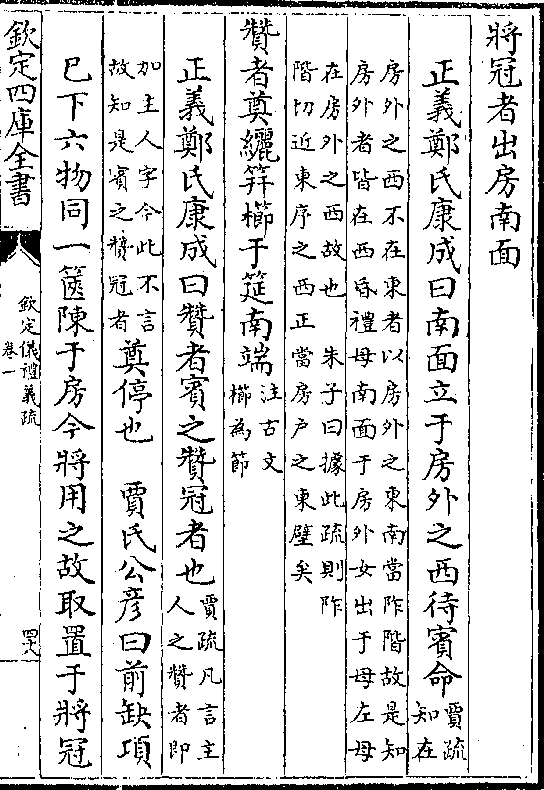 將冠者出房南面
正義鄭氏康成曰南面立于房外之西待賓命賈疏
知在
房外之西不在東者以房外之東南當阼階故是知
房外者皆在西昏禮母南面于房外女出于母左母
在房外之西故也　朱子曰據此疏則阼
階切近東序之西正當房戶之東壁矣
贊者奠纚笄櫛于筵南端注古文
櫛為節
正義鄭氏康成曰贊者賓之贊冠者也賈疏凡言主
人之贊者即
加主人字今此不言
故知是賓之贊冠者
奠停也　賈氏公彦曰前缺項
巳下六物同一篋陳于房今將用之故取置于將冠
欽定四庫全書
欽定儀禮義疏
卷一